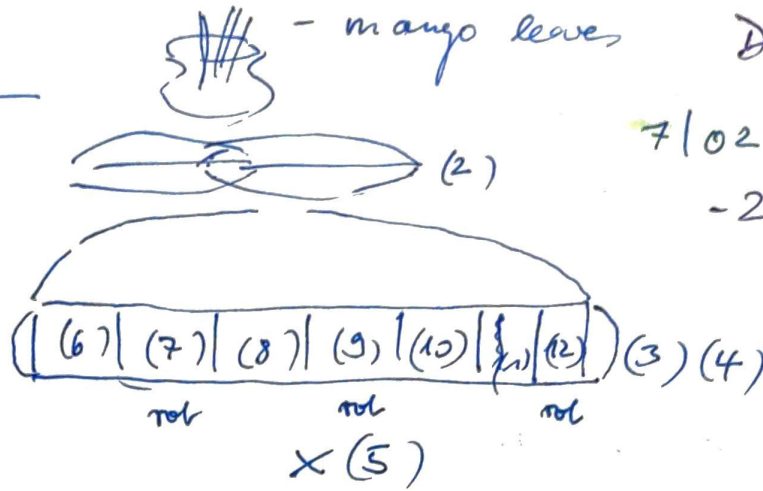 - mango leaves
D
7/02
(2)
-2
(6) (7) (8) (9) (10) (11) (12) (3) (4)
rot rot rot
X (5)